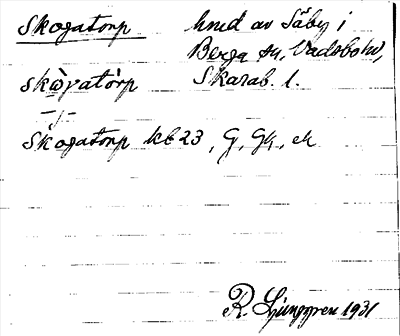 Skogatorp hmd av Säby i
Berga sn, Vadsbohd,
skωgatòrp Skarab. l.
-"-
Skogatorp kb 23, G, Gk, ek
R. Ljunggren 1931